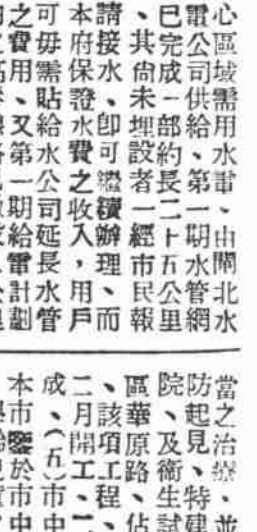 心區域需用水電、由閘北水
電公司供給、第一期水管網
已完成一部約長二十五公里
、其尙未埋設者一經市民報
請接水、卽可繼續辦理、而
本府保證水費之收入，用戶
可毋需貼給水公司延長水管
之費用、又第一期給電計劃
當之治療、並
防起見、特建
院、及衞生試
區華原路、佔
、該項工程、
二月開工、
成、（五）市中
本市鑒於市中